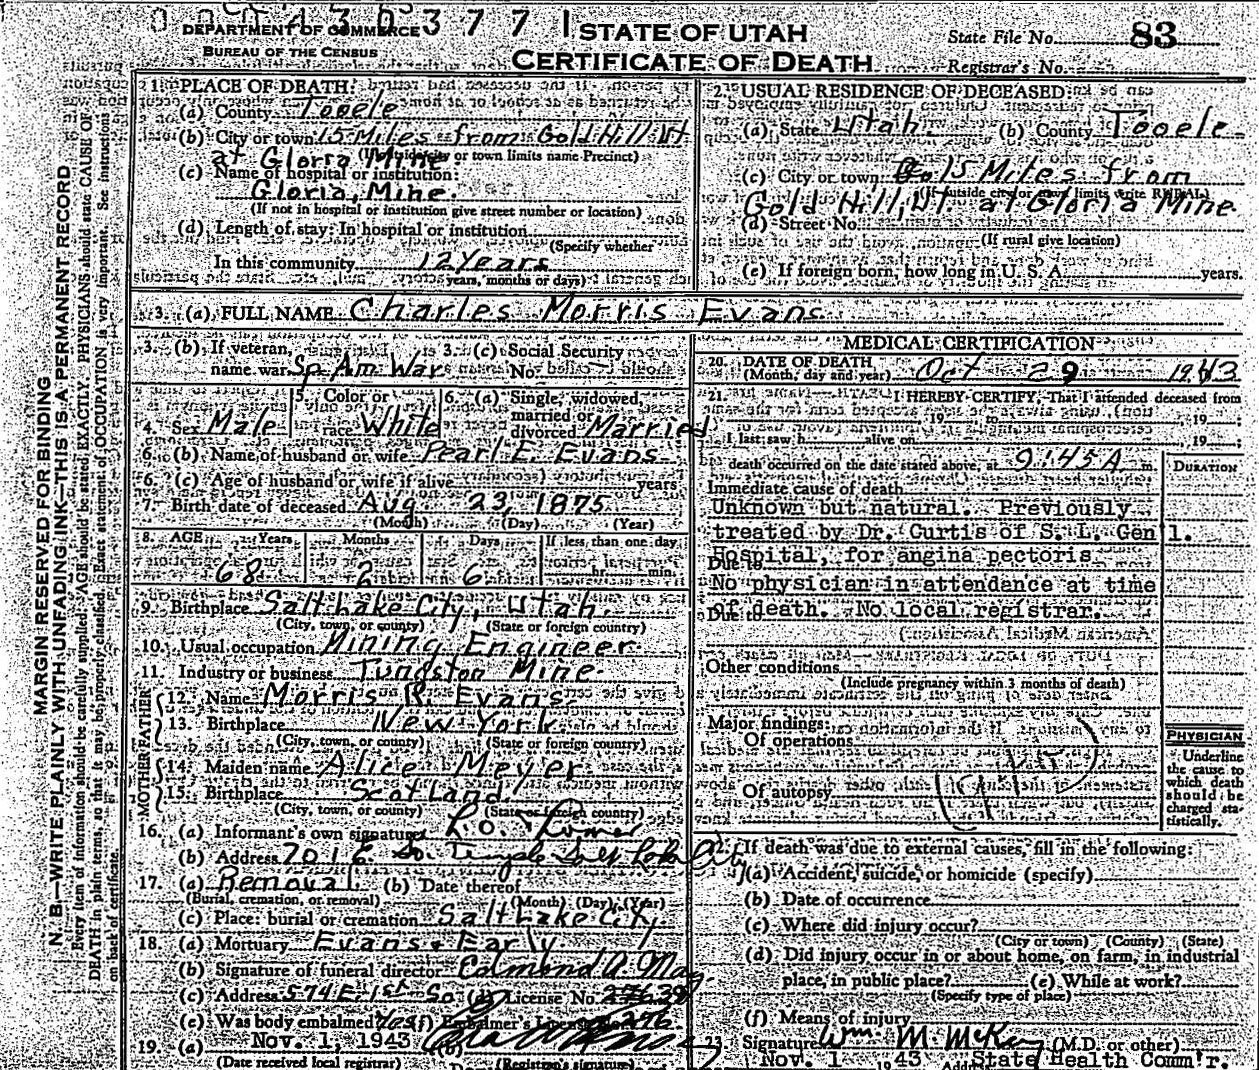 DEPARTMENT OF COMMERCE
BUREAU OF THE CENSUS
3 7 7
STATE OF UTAH
CERTIFICATE OF DEATH
State File No. 83
Registrar's No.
MARGIN RESERVED FOR BINDING
N. B.—WRITE PLAINLY WITH UNFADING INK—THIS IS A PERMANENT RECORD
Every item of information should be carefully supplied. AGE should be stated EXACTLY. PHYSICIANS should state CAUSE OF
DEATH in plain terms, so that it may be properly classified. Exact statement of OCCUPATION is very important. See instructions
on back of certificate.
1. PLACE OF DEATH:
(a) County Tooele
(b) City or town 15 Miles from Gold Hill Ut
at Gloria Mine
(If outside city or town limits name Precinct)
(c) Name of hospital or institution:
Gloria, Mine.
(If not in hospital or institution give street number or location)
(d) Length of stay: In hospital or institution
(Specify whether
In this community 12 Years
years, months or days)
2. USUAL RESIDENCE OF DECEASED:
(a) State Utah. (b) County Tooele
(c) City or town 15 Miles from
(If outside city or town limits write RURAL)
Gold Hill, UT at Gloria Mine
(d) Street No.
(If rural give location)
(e) If foreign born, how long in U. S. A. years.
3. (a) FULL NAME Charles Morris Evans
3. (b) If veteran, name war Sp. Am War
3. (c) Social Security No.
4. Sex Male
5. Color or race White
6. (a) Single, widowed, married or divorced Married
6. (b) Name of husband or wife Pearl E. Evans
6. (c) Age of husband or wife if alive years
7. Birth date of deceased Aug. 23, 1875
(Month) (Day) (Year)
8. AGE Years Months Days If less than one day
68 2 6 hr. min.
9. Birthplace Salt Lake City, Utah.
(City, town, or county) (State or foreign country)
10. Usual occupation Mining Engineer
11. Industry or business Tungston Mine
FATHER
12. Name Morris R. Evans
13. Birthplace New York
(City, town, or county) (State or foreign country)
MOTHER
14. Maiden name Alice Meyer
15. Birthplace Scotland
(City, town, or county) (State or foreign country)
16. (a) Informant's own signature
(b) Address 701 E. So. Temple Salt Lake City
17. (a) Removal (b) Date thereof
(Burial, cremation, or removal) (Month) (Day) (Year)
(c) Place: burial or cremation Salt Lake City.
18. (a) Mortuary Evans & Early
(b) Signature of funeral director Edmond A.
(c) Address 574 E. 1st So (d) License No.
(e) Was body embalmed? Yes (f) Embalmer's License No. 276
19. (a) Nov. 1, 1943 (b)
(Date received local registrar) (Registrar's signature)
MEDICAL CERTIFICATION
20. DATE OF DEATH
(Month, day and year) Oct 29 1943
21. I HEREBY CERTIFY, That I attended deceased from
, 19 to , 19 ;
I last saw h alive on , 19 ;
death occurred on the date stated above, at 9:45 A m.
DURATION
Immediate cause of death
Unknown but natural. Previously
treated by Dr. Curtis of S. L. Gen'l.
Hospital, for angina pectoris
Due to
No physician in attendance at time
of death. No local registrar.
Due to
Other conditions
(Include pregnancy within 3 months of death)
Major findings:
Of operations
Of autopsy
PHYSICIAN
Underline
the cause to
which death
should be
charged sta-
tistically.
22. If death was due to external causes, fill in the following:
(a) Accident, suicide, or homicide (specify)
(b) Date of occurrence
(c) Where did injury occur?
(City or town) (County) (State)
(d) Did injury occur in or about home, on farm, in industrial
place, in public place? (e) While at work?
(Specify type of place)
(f) Means of injury
23 Signature Wm. M. McKay (M.D. or other)
Nov. 1 1943 Address State Health Comm'r.